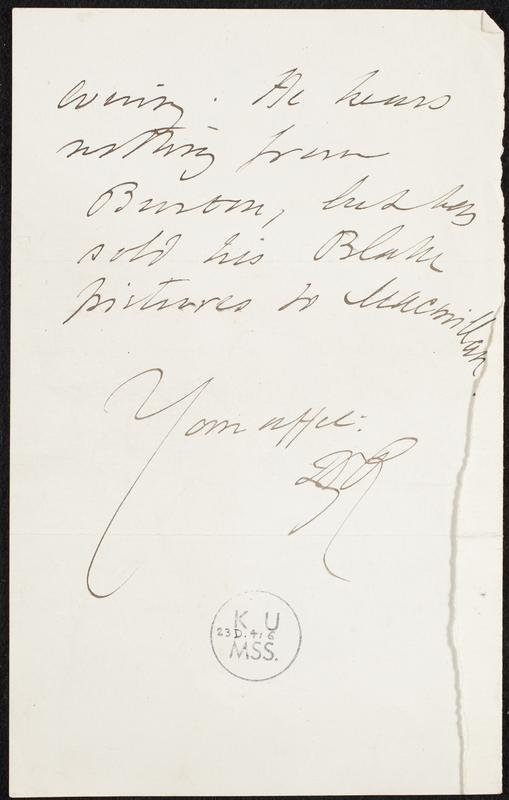 evening. He hears
nothing from
Burton, but has
sold his Blake
pictures to Macmillan.
Your affec:
DGR
K U
23D.4:6
MSS.